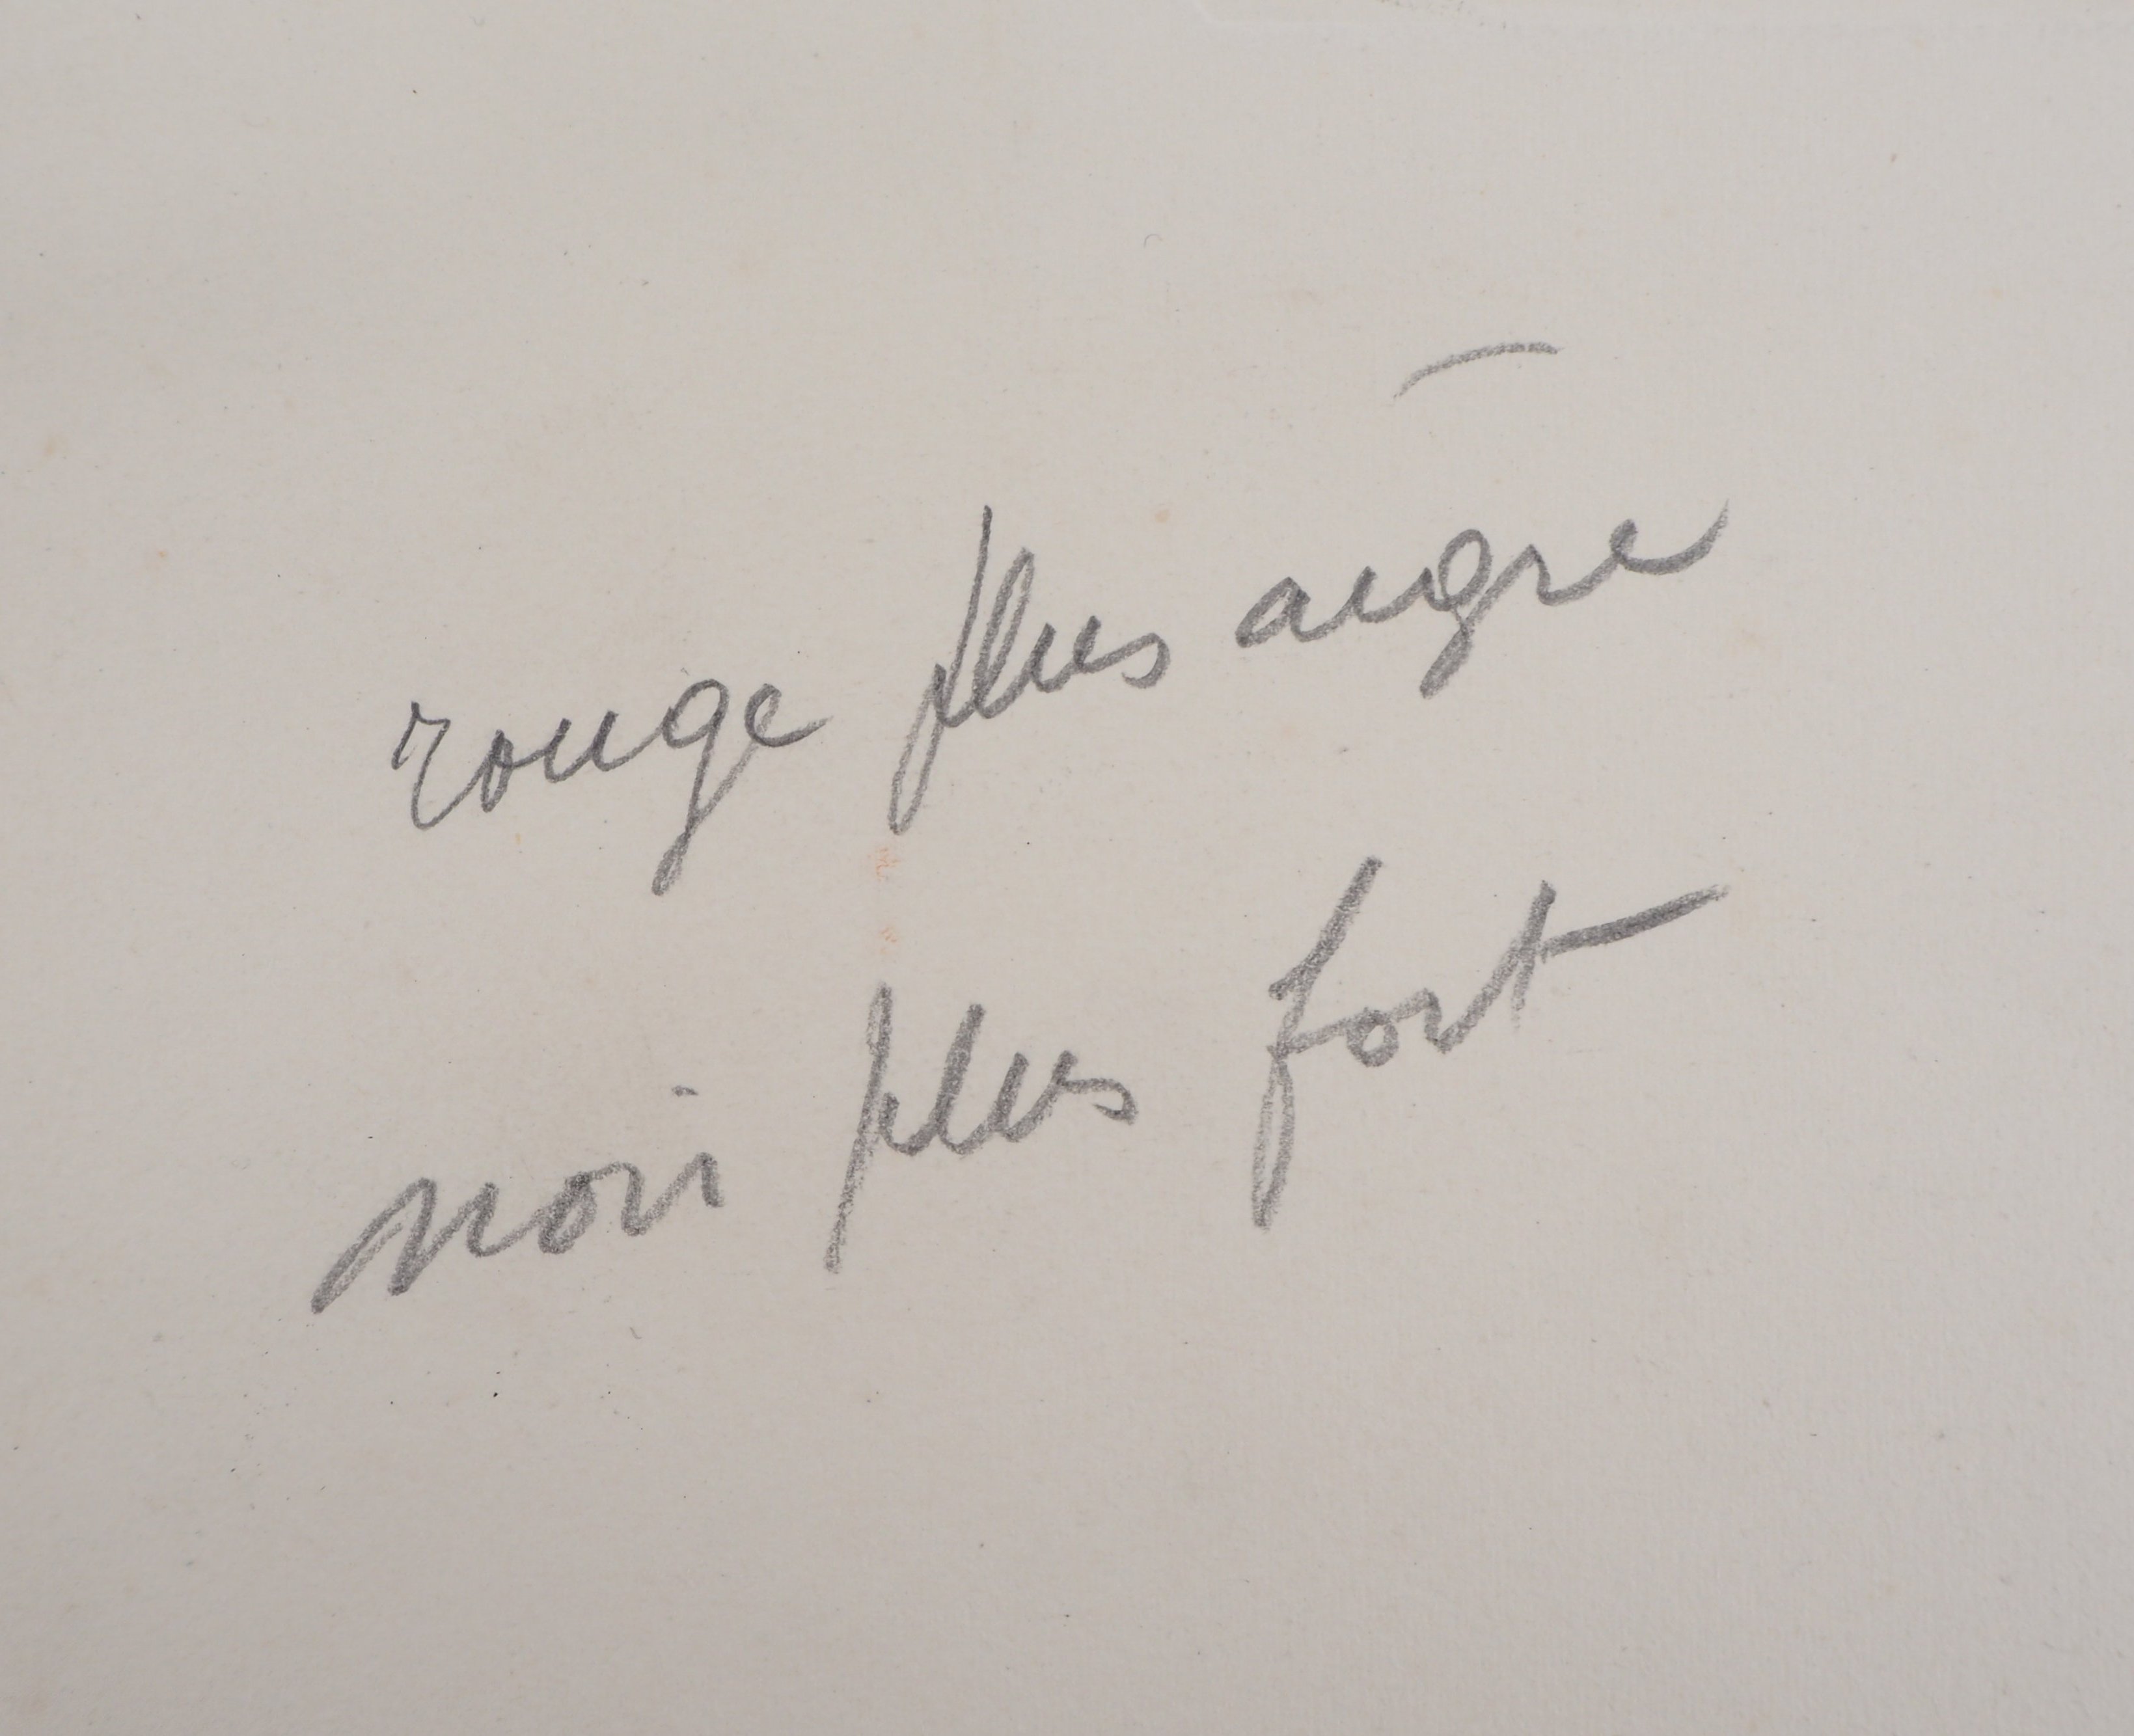 rouge plus aigre
noir plus fort